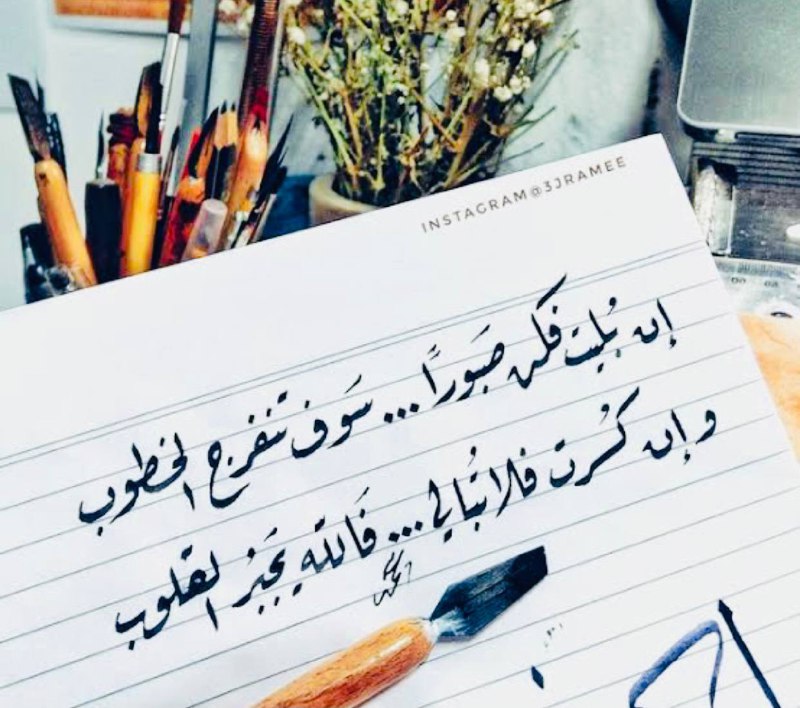 INSTAGRAM@3JRAMEE
إن بُليت فكن صَبورًا ... سَوف تنفرج الخطوب
وإن كُسرت فلا تُبالي ... فَالله يَجبُر القلوب